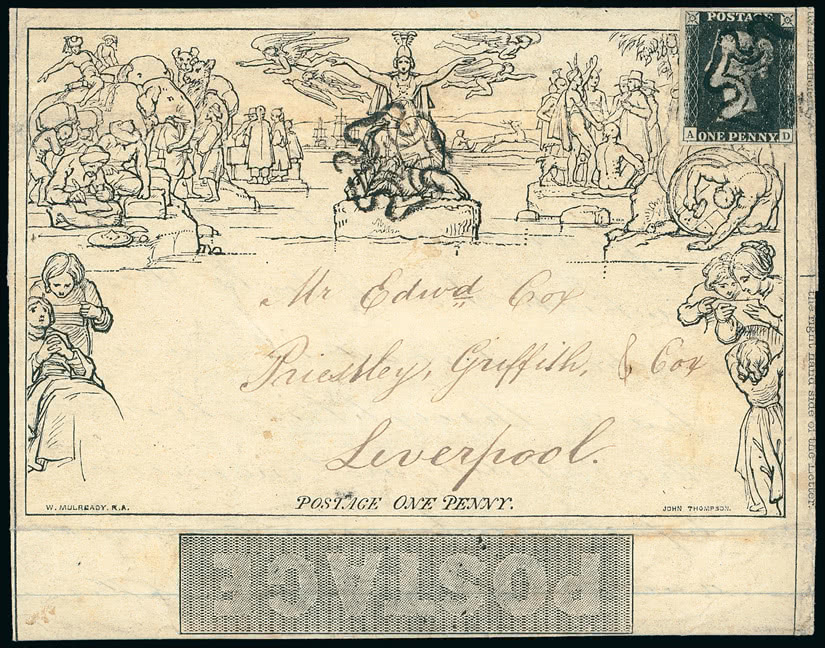 POSTAGE
A ONE PENNY D
Mr Edwd Cox
Priestley, Griffith, & Cox
Liverpool.
POSTAGE ONE PENNY.
W. MULREADY. R.A.
JOHN THOMPSON.
the right hand side of the Letter
POSTAGE